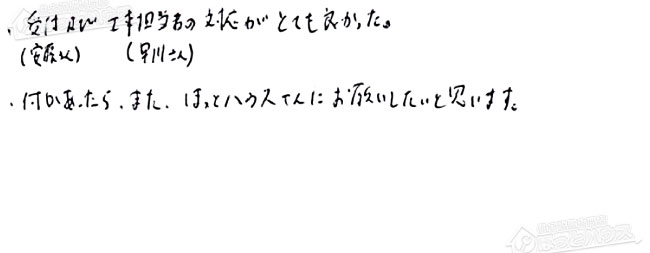 ・受付及び工事担当者の対応がとても良かった。
(安藤さん) (早川さん)
・何かあったら、また、ほっとハウスさんにお願いしたいと思います。
ほっとハウス